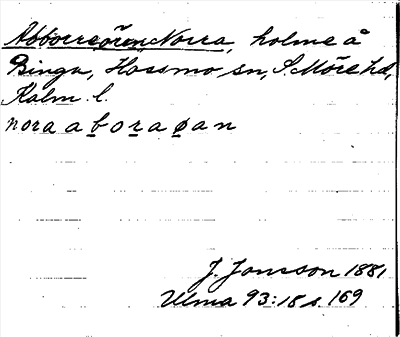 Abborreören Norra, holme å
Binga, Hossmo sn, S. Möre hd,
Kalm. l.
nora aboraøan
J. Jonsson 1881
Ulma 93:18 s. 169